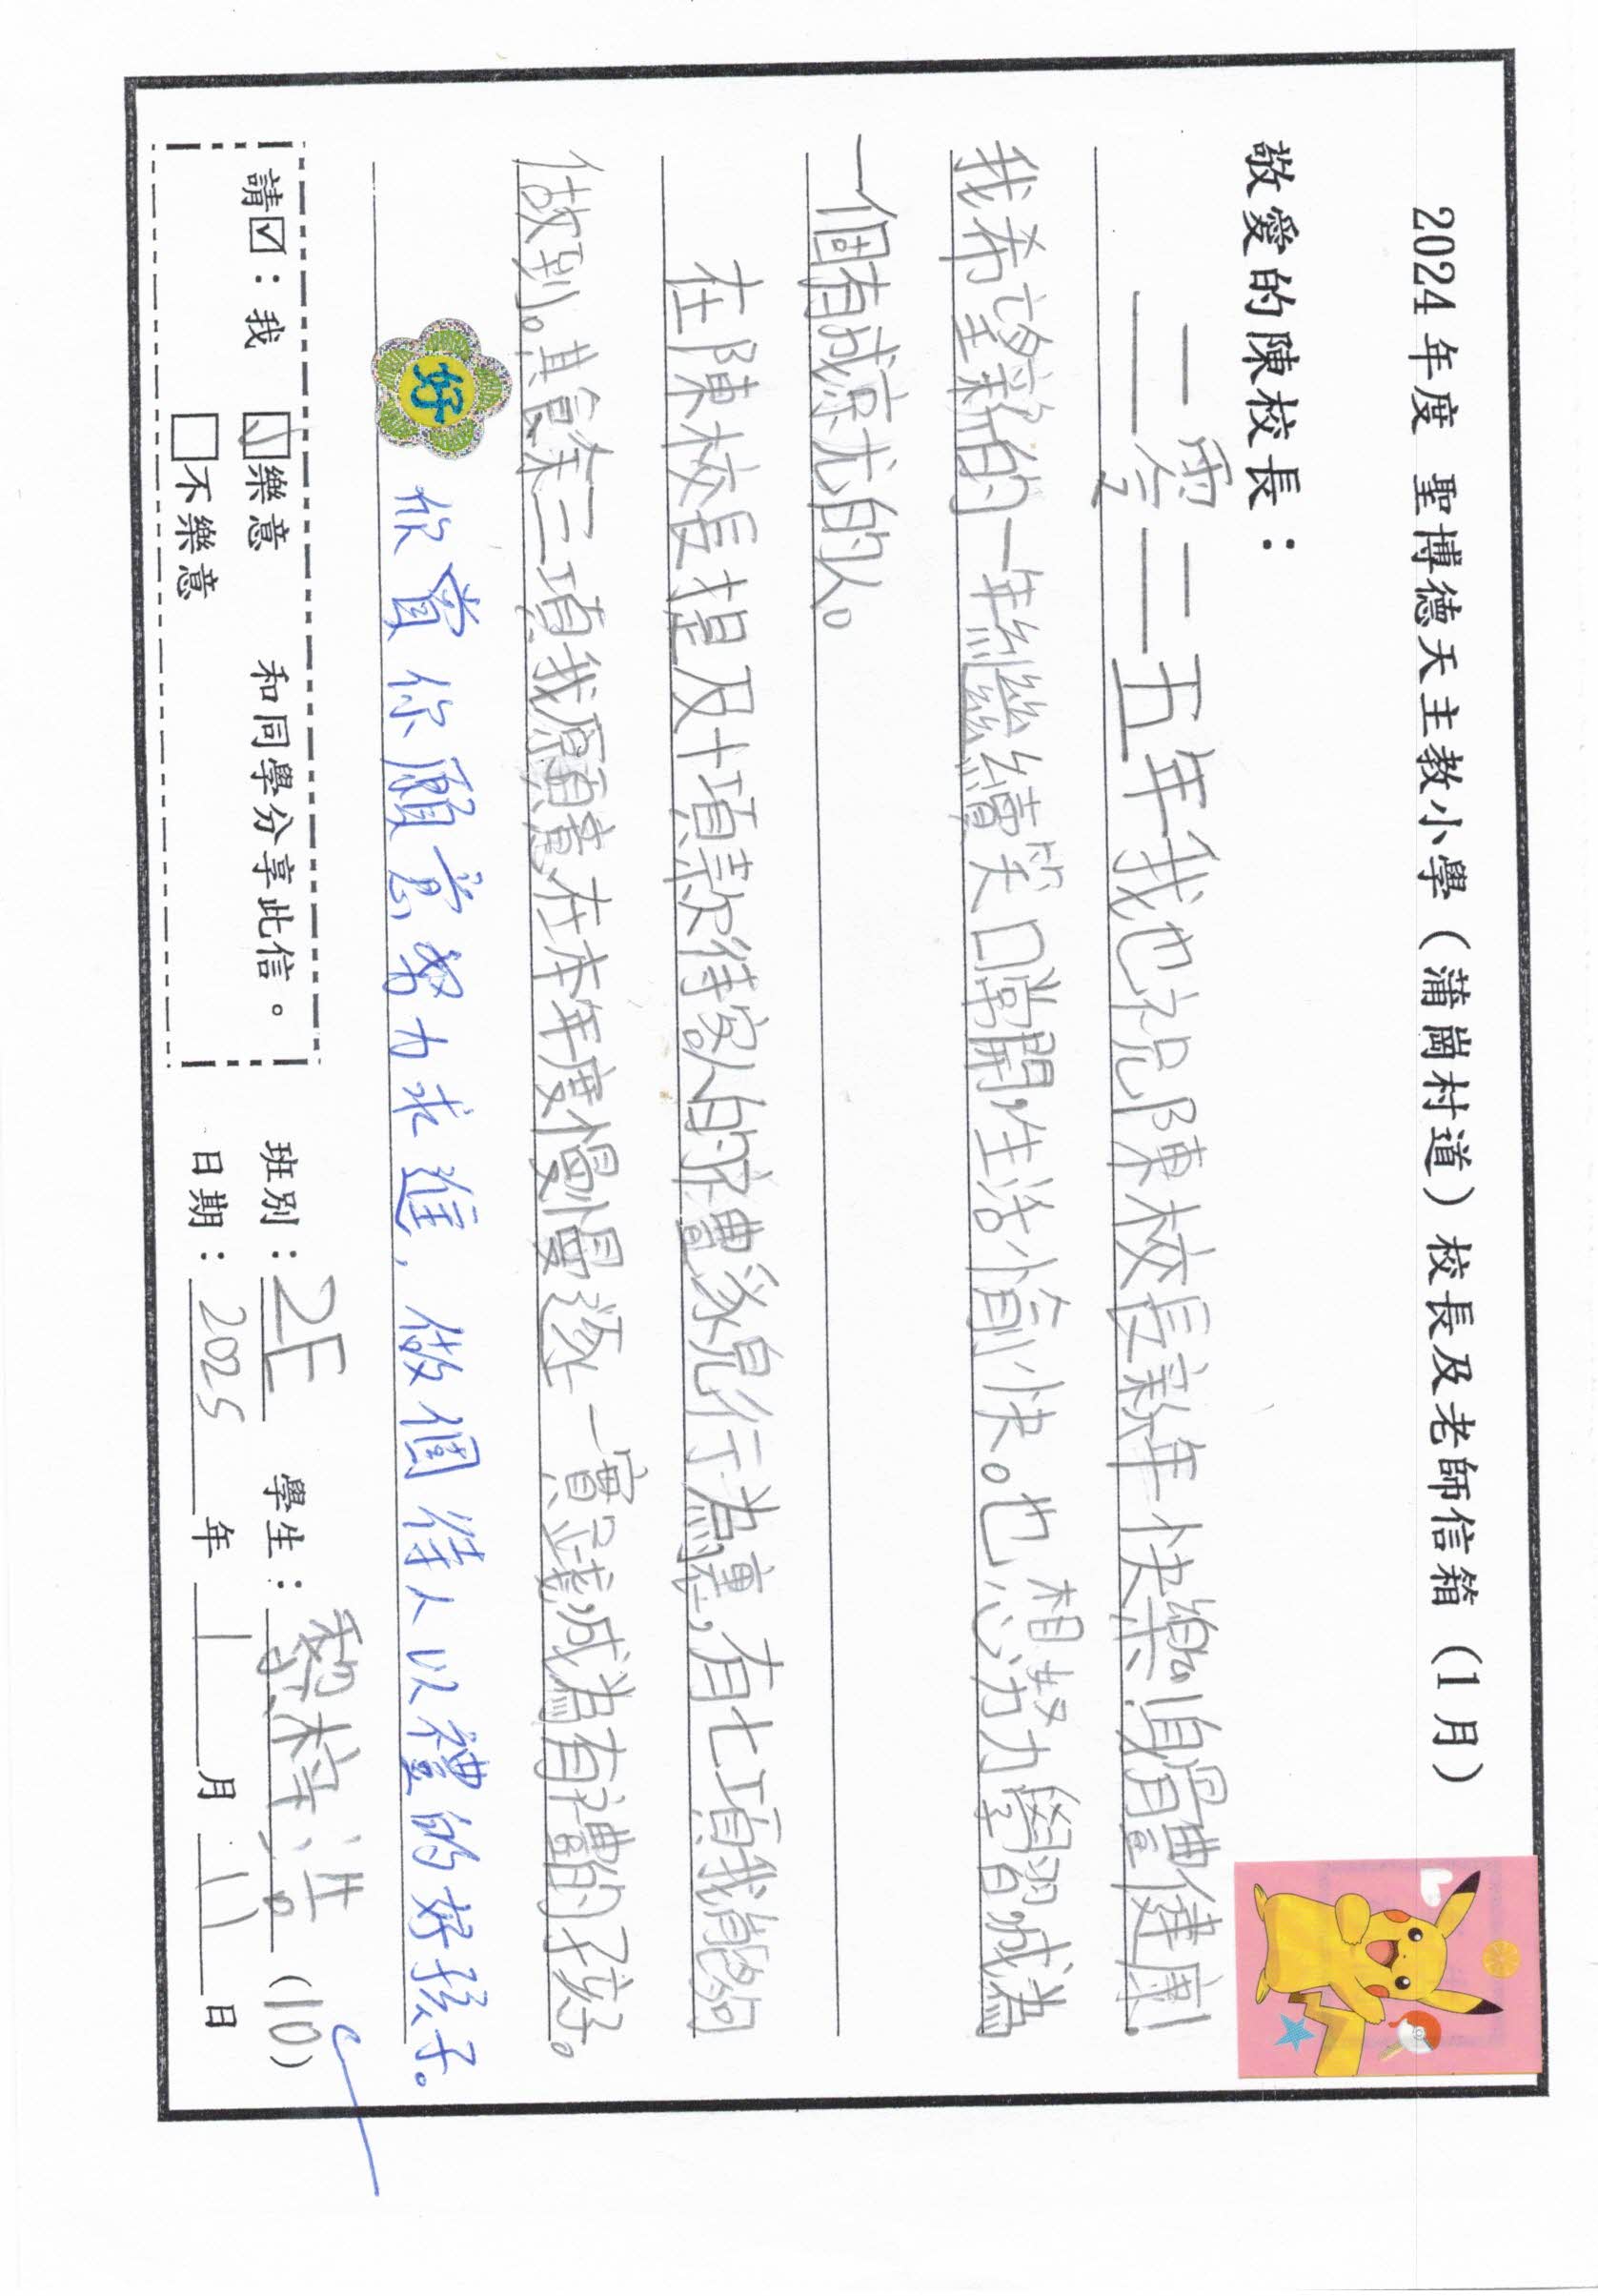 2024年度 聖博德天主教小學（蒲崗村道）校長及老師信箱（1月）
敬愛的陳校長：
二零二五年我也祝陳校長新年快樂，身體健康！
我希望新的一年繼續笑口常開，生活愉快。也想努力學習，成為
一個有成就的人。
在陳校長提及十項款待客人的禮貌行為裏，有七項我能夠
做到。其餘三項我願意在本年度慢慢逐一實踐，成為有禮的孩子。
好
欣賞你願意努力求進，做個待人以禮的好孩子。
請☑：我 ☑樂意 和同學分享此信。
□不樂意
班別：2E 學生：黎梓 (10)
日期：2025年1月11日